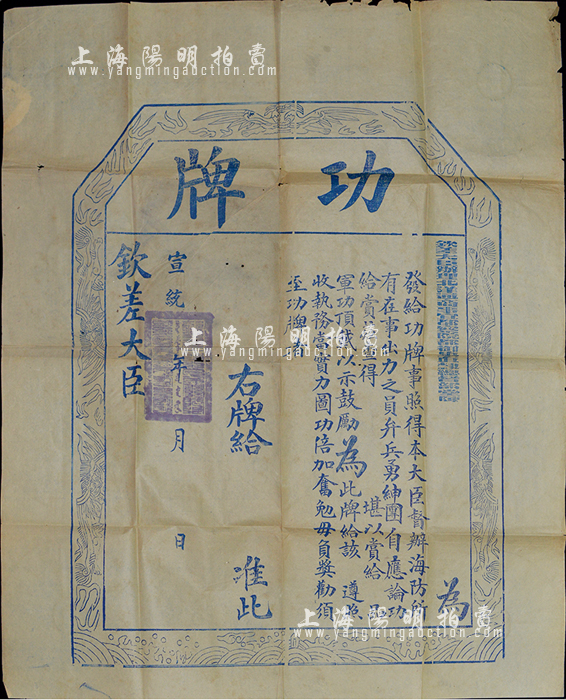 上海陽明拍賣
www.yangmingauction.com
功牌
為
發給功牌事照得本大臣督辦海防所
有在事出力之員弁兵勇紳團自應論功
給賞茲查得
堪以賞給
軍功頂戴以示鼓勵為此牌給該
遵照
收執務當實力圖功倍加奮勉毋負獎勸須
至功牌者
右牌給
准此
宣統
年
月
日
欽差大臣
上海陽明拍賣
www.yangmingauction.com
上海陽明拍賣
www.yangmingauction.com